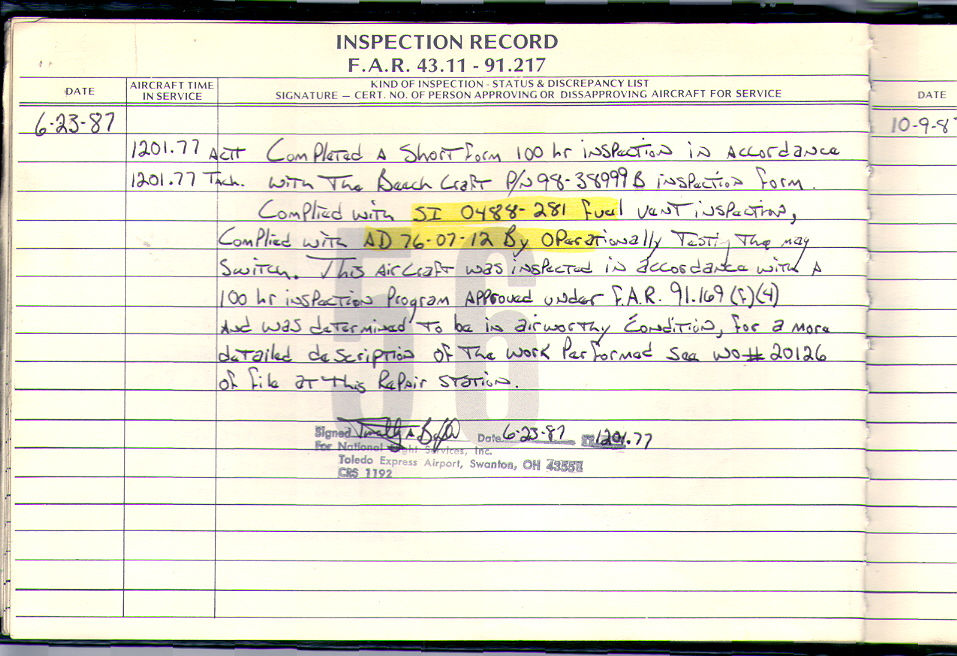 INSPECTION RECORD
F.A.R. 43.11 - 91.217
DATE
AIRCRAFT TIME
IN SERVICE
KIND OF INSPECTION - STATUS & DISCREPANCY LIST
SIGNATURE — CERT. NO. OF PERSON APPROVING OR DISSAPPROVING AIRCRAFT FOR SERVICE
DATE
6-23-87
10-9-87
1201.77 ACTT Completed A Short Form 100 hr inspection in Accordance
1201.77 Tach. with The Beech Craft P/N 98-38999B inspection form.
Complied with SI 0488-281 fuel vent inspection,
Complied with AD 76-07-12 By Operationally Testing The mag
Switch. This AirCraft was inspected in accordance with A
100 hr inspection Program Approved under F.A.R. 91.169 (F)(4)
And was determined to be in airworthy Condition, for a more
detailed description of The work Performed see WO# 20126
of file at This Repair station.
56
Signed Date 6-23-87 1201.77
For National Flight Services, Inc.
Toledo Express Airport, Swanton, OH 43558
CRS 1192